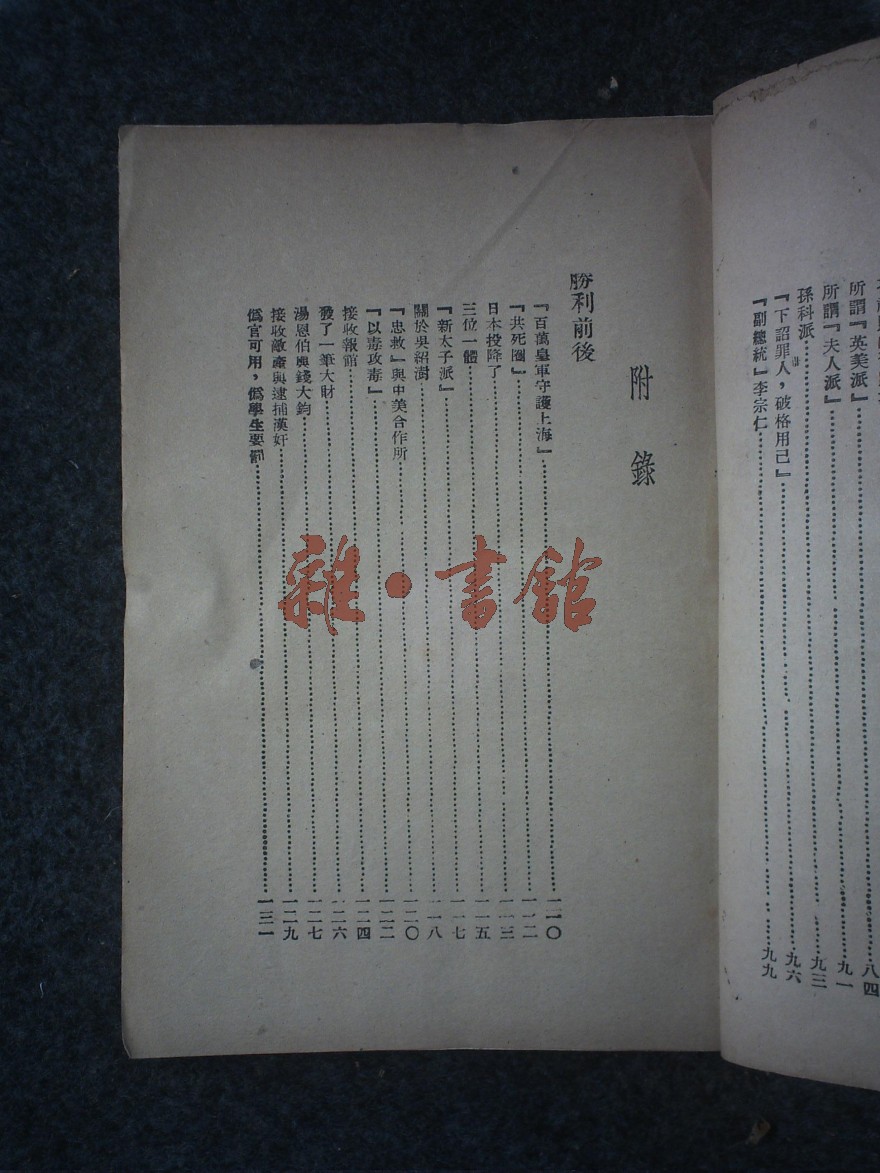 所謂『英美派』……八四
所謂『夫人派』……九一
孫科派……九三
『下詔罪人，破格用己』……九六
『副總統』李宗仁……九九
附錄
勝利前後
『百萬皇軍守護上海』……一一〇
『共死圈』……一一二
日本投降了……一一三
三位一體……一一五
『新太子派』……一一七
關於吳紹澍……一一八
『忠救』與中美合作所……一二〇
『以毒攻毒』……一二二
接收報館……一二四
發了一筆大財……一二六
湯恩伯與錢大鈞……一二七
接收敵產與逮捕漢奸……一二九
僞官可用，僞學生要……一三一
雜·書館